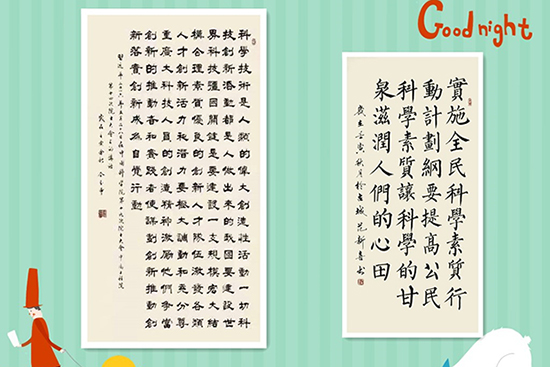 Good night
科學技術是人類的偉大創造性活動一切科
技創新活動都是人做出來的我國要建設世
界科技強國關鍵是要建設一支規模宏大結
構合理素質優良的創新人才隊伍激發各類
人才創新活力和潛力要極大調動和充分尊
重廣大科技人員的創造精神激勵他們爭當
創新的推動者和實踐者使謀劃創新推動創
新落實創新成為自覺行動
實施全民科學素質行
動計劃綱要提高公民
科學素質讓科學的甘
泉滋潤人們的心田